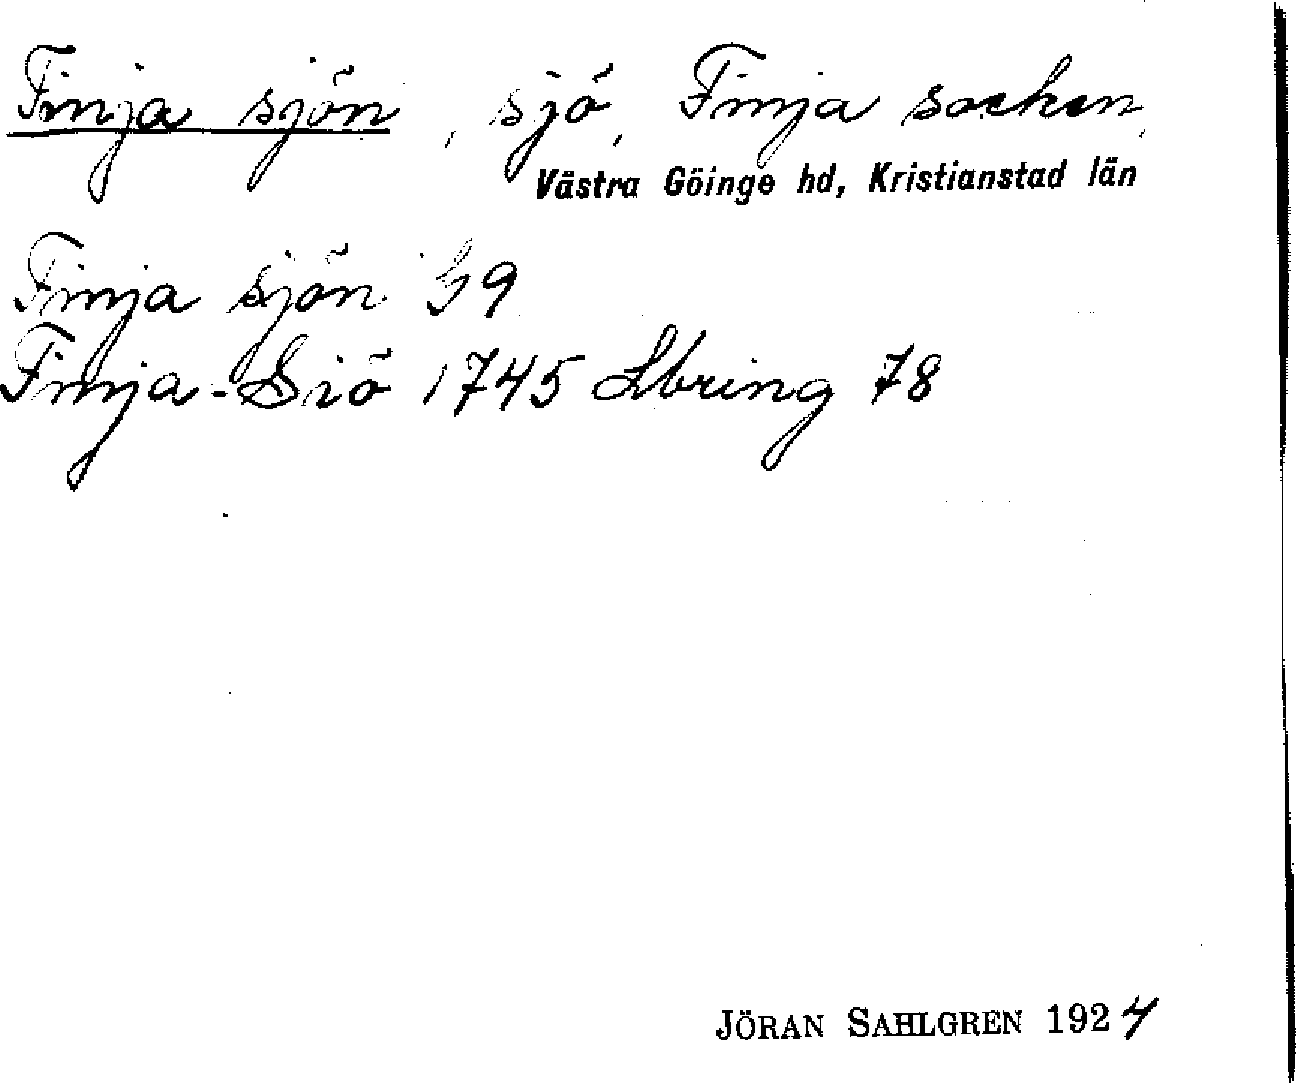 Finja sjön, sjö, Finja socken,
Västra Göinge hd, Kristianstad län
Finja sjön G9
Finja-Siö 1745 Lbring 78
JÖRAN SAHLGREN 1924